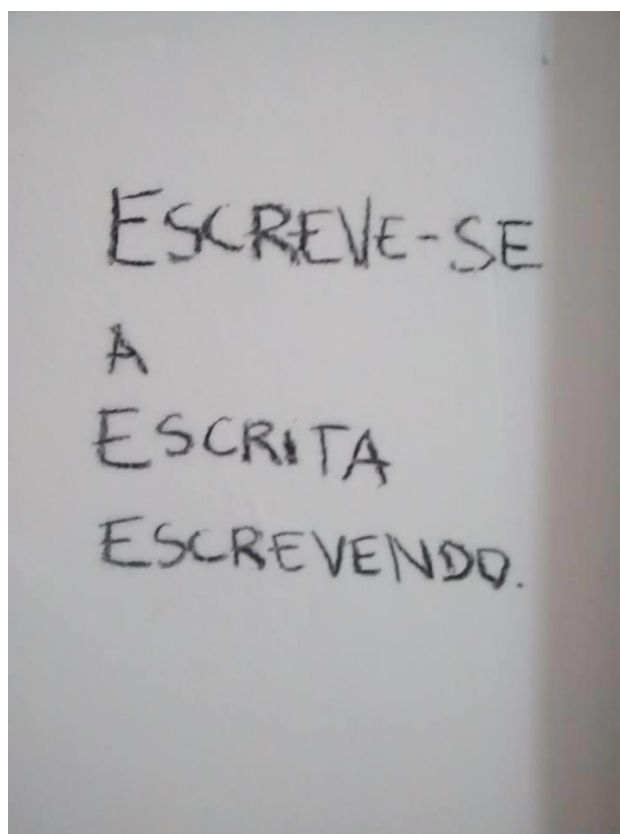 ESCREVE-SE
A
ESCRITA
ESCREVENDO.